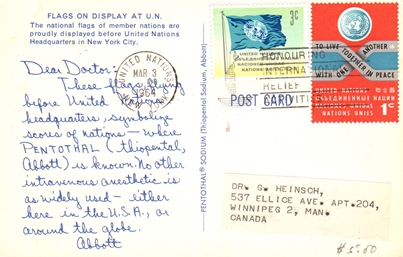 FLAGS ON DISPLAY AT U.N.
The national flags of member nations are
proudly displayed before United Nations
Headquarters in New York City.
Dear Doctor:
These flags, flying
before United Nations
headquarters, symbolize
scores of nations — where
PENTOTHAL (thiopental,
Abbott) is known. No other
intravenous anesthetic is
as widely used — either
here in the U.S.A., or
around the globe.
Abbott
PENTOTHAL® SODIUM (Thiopental Sodium, Abbott)
UNITED NATIONS
MAR 3
1964
NEW
3¢
UNITED NATIONS
HONOURING
INTERNA
RELIEF
POST CARD
TO LIVE TOGETHER IN PEACE
WITH ONE ANOTHER
UNITED NATIONS
ОБЪЕДИНЕННЫЕ НАЦИИ
NACIONES UNIDAS
NATIONS UNIES
1¢
DR. G. HEINSCH,
537 ELLICE AVE. APT.204,
WINNIPEG 2, MAN.
CANADA
$5.00